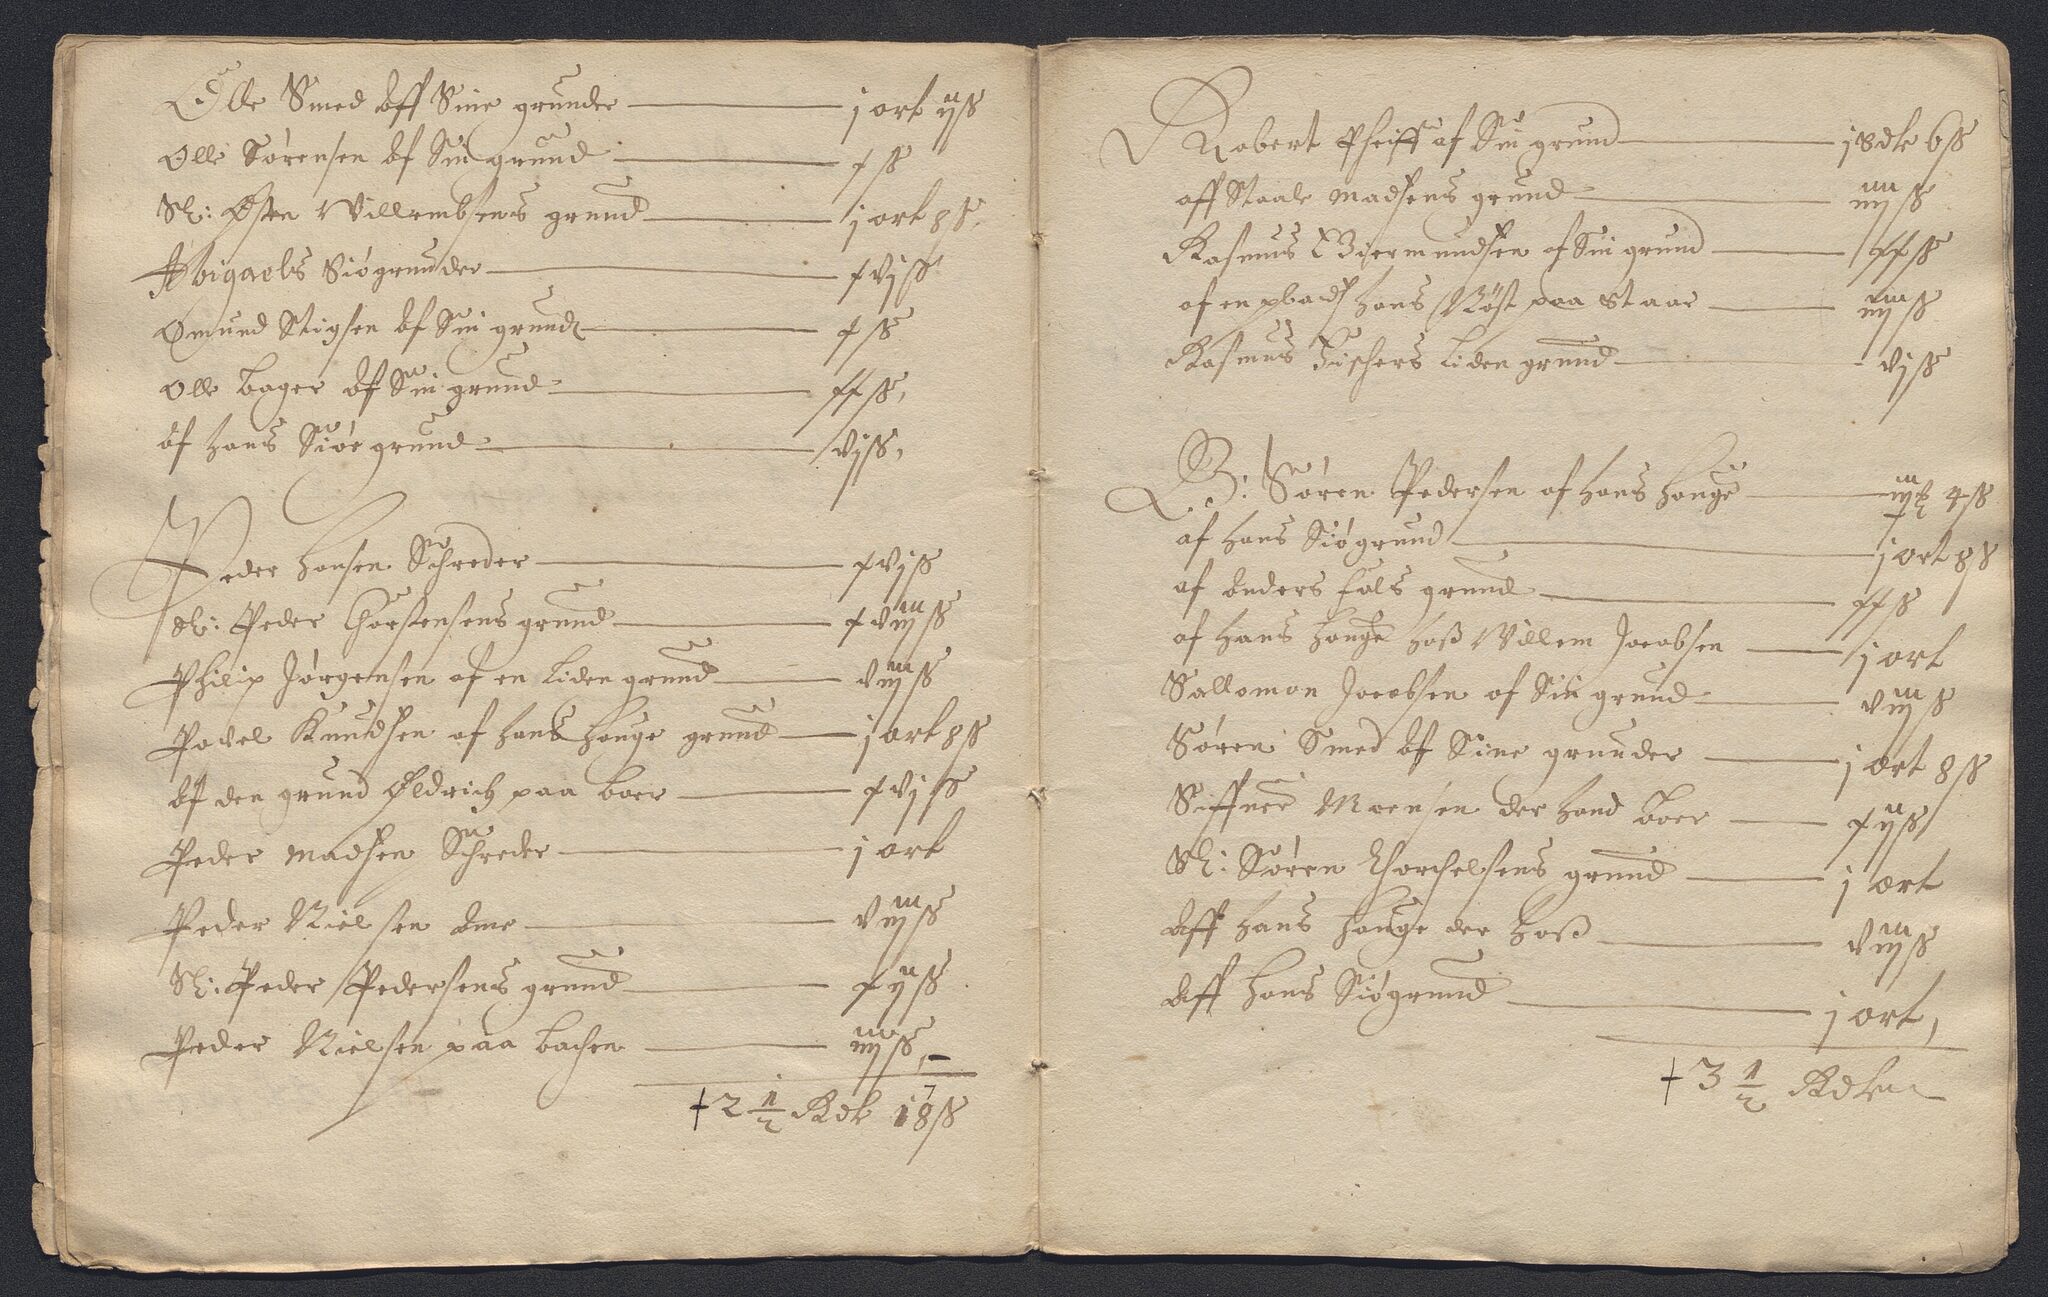 Olle Smed aff Sine grunde — j ort ijß
Olle Sørensen af Sin grund — xß
Sl: Østen Willembsens grund — j ort 8ß
Abigaels Siøgrunder — xvjß
Omund Stigsen af Sin grund — xß
Olle bager af Sin grund — xxß
af hans Siøe grund — vjß
Peder Hansen Schreder — xvjß
Sl: Peder Thorstensens grund — xviijß
Philip Jørgensen af en liden grund — viijß
Povel Knudsen af hans hauge grund — j ort 8ß
af den grund Eldrich paa boer — xvjß
Peder Madsen Schreder — j ort
Peder Nielsen — viijß
Sl: Peder Pedersens grund — xijß
Peder Nielsen paa bachen — iiijß
+ 2 1/2 Rdlr 18ß
Robert Pheiff af Sin grund — j Rdlr 6ß
aff Staale Madsens grund — iiijß
Rasmus Giermundsen af Sin grund — xxß
af en pladtz hans Nøst paa staar — iiijß
Rasmus Fischers liden grund — vjß
B: Søren Pedersen af hans hauge — 4ß
af hans Siøgrund — j ort 8ß
af Anders Fals grund — xxß
af hans hauge hoß Willem Jacobsen — j ort
Sallomon Jacobsen af Sin grund — viijß
Søren Smed af Sine grunder — j ort 8ß
Siffuer Moensen der hand boer — xijß
Sl: Søren Thorchelsens grund — j ort
Aff hans hauge der hoß — viijß
Aff hans Siøgrund — j ort
+ 3 1/2 Rdler